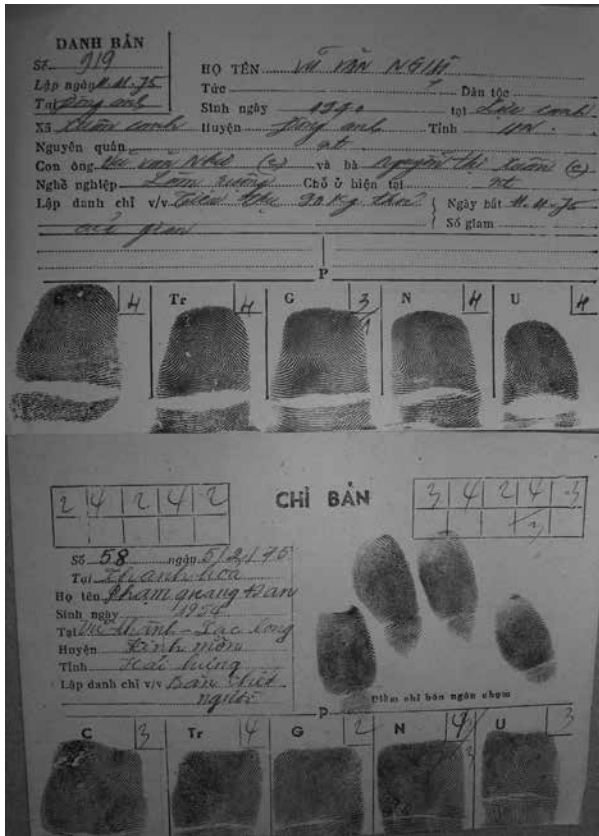 DANH BẢN
Số 919
Lập ngày 11.11.75
Tại Đông anh
HỌ TÊN Vũ VĂN NGHĨ
Tức Dân tộc
Sinh ngày 1940 tại Xuân canh
Xã Xuân canh Huyện Đông anh Tỉnh HN.
Nguyên quán nt
Con ông Vũ văn Nho (c) và bà Nguyễn thị Xuân (c)
Nghề nghiệp Làm ruộng Chỗ ở hiện tại nt
Lập danh chỉ v/v Tiêu thụ 20 Kg Ngày bắt 11-11-75
của gian Số giam
P
C 4 Tr 4 G 3 N 4 U 4
1
2 4 2 4 2
CHỈ BẢN
3 4 2 4 3
3
Số 58 ngày 5/2/75
Tại Thanh hóa
Họ tên Phạm quang Đan
Sinh ngày 1954
Tại - Lạc long
Huyện Kinh môn
Tỉnh Hải hưng
Lập danh chỉ v/v Bắn chết
người
Điểm chỉ bốn ngón chụm
P
C 3 Tr 4 G 2 N 4 U 3
3